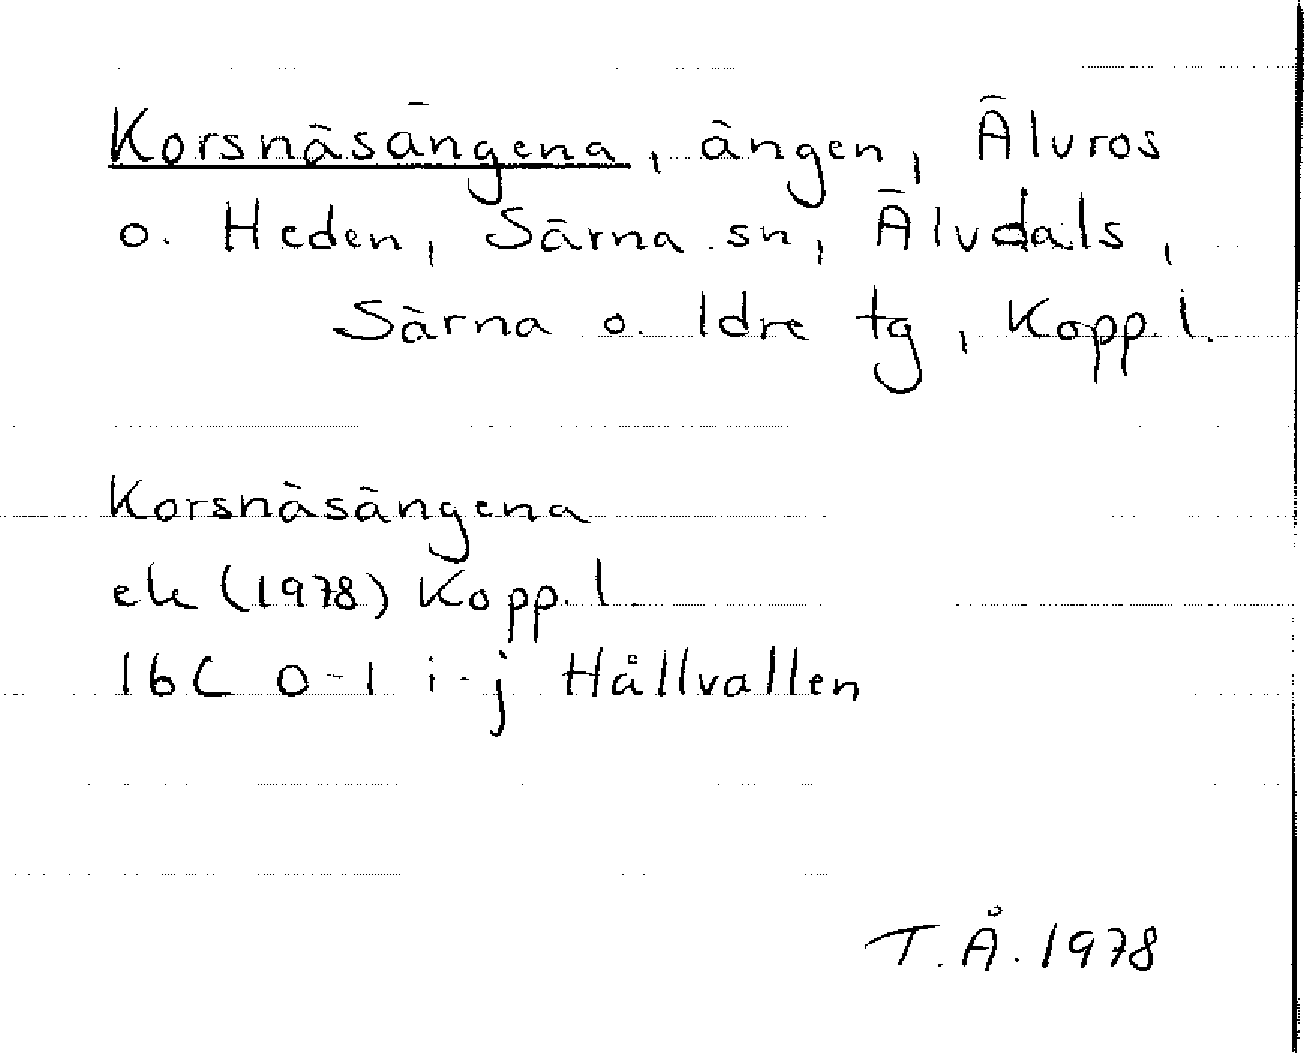 Korsnäsängena, ängen, Älvros
o. Heden, Särna sn, Älvdals,
Särna o. Idre tg, Kopp.l.
Korsnäsängena
ek (1978) Kopp.l.
16C 0-1 i-j Hållvallen
T.Å. 1978